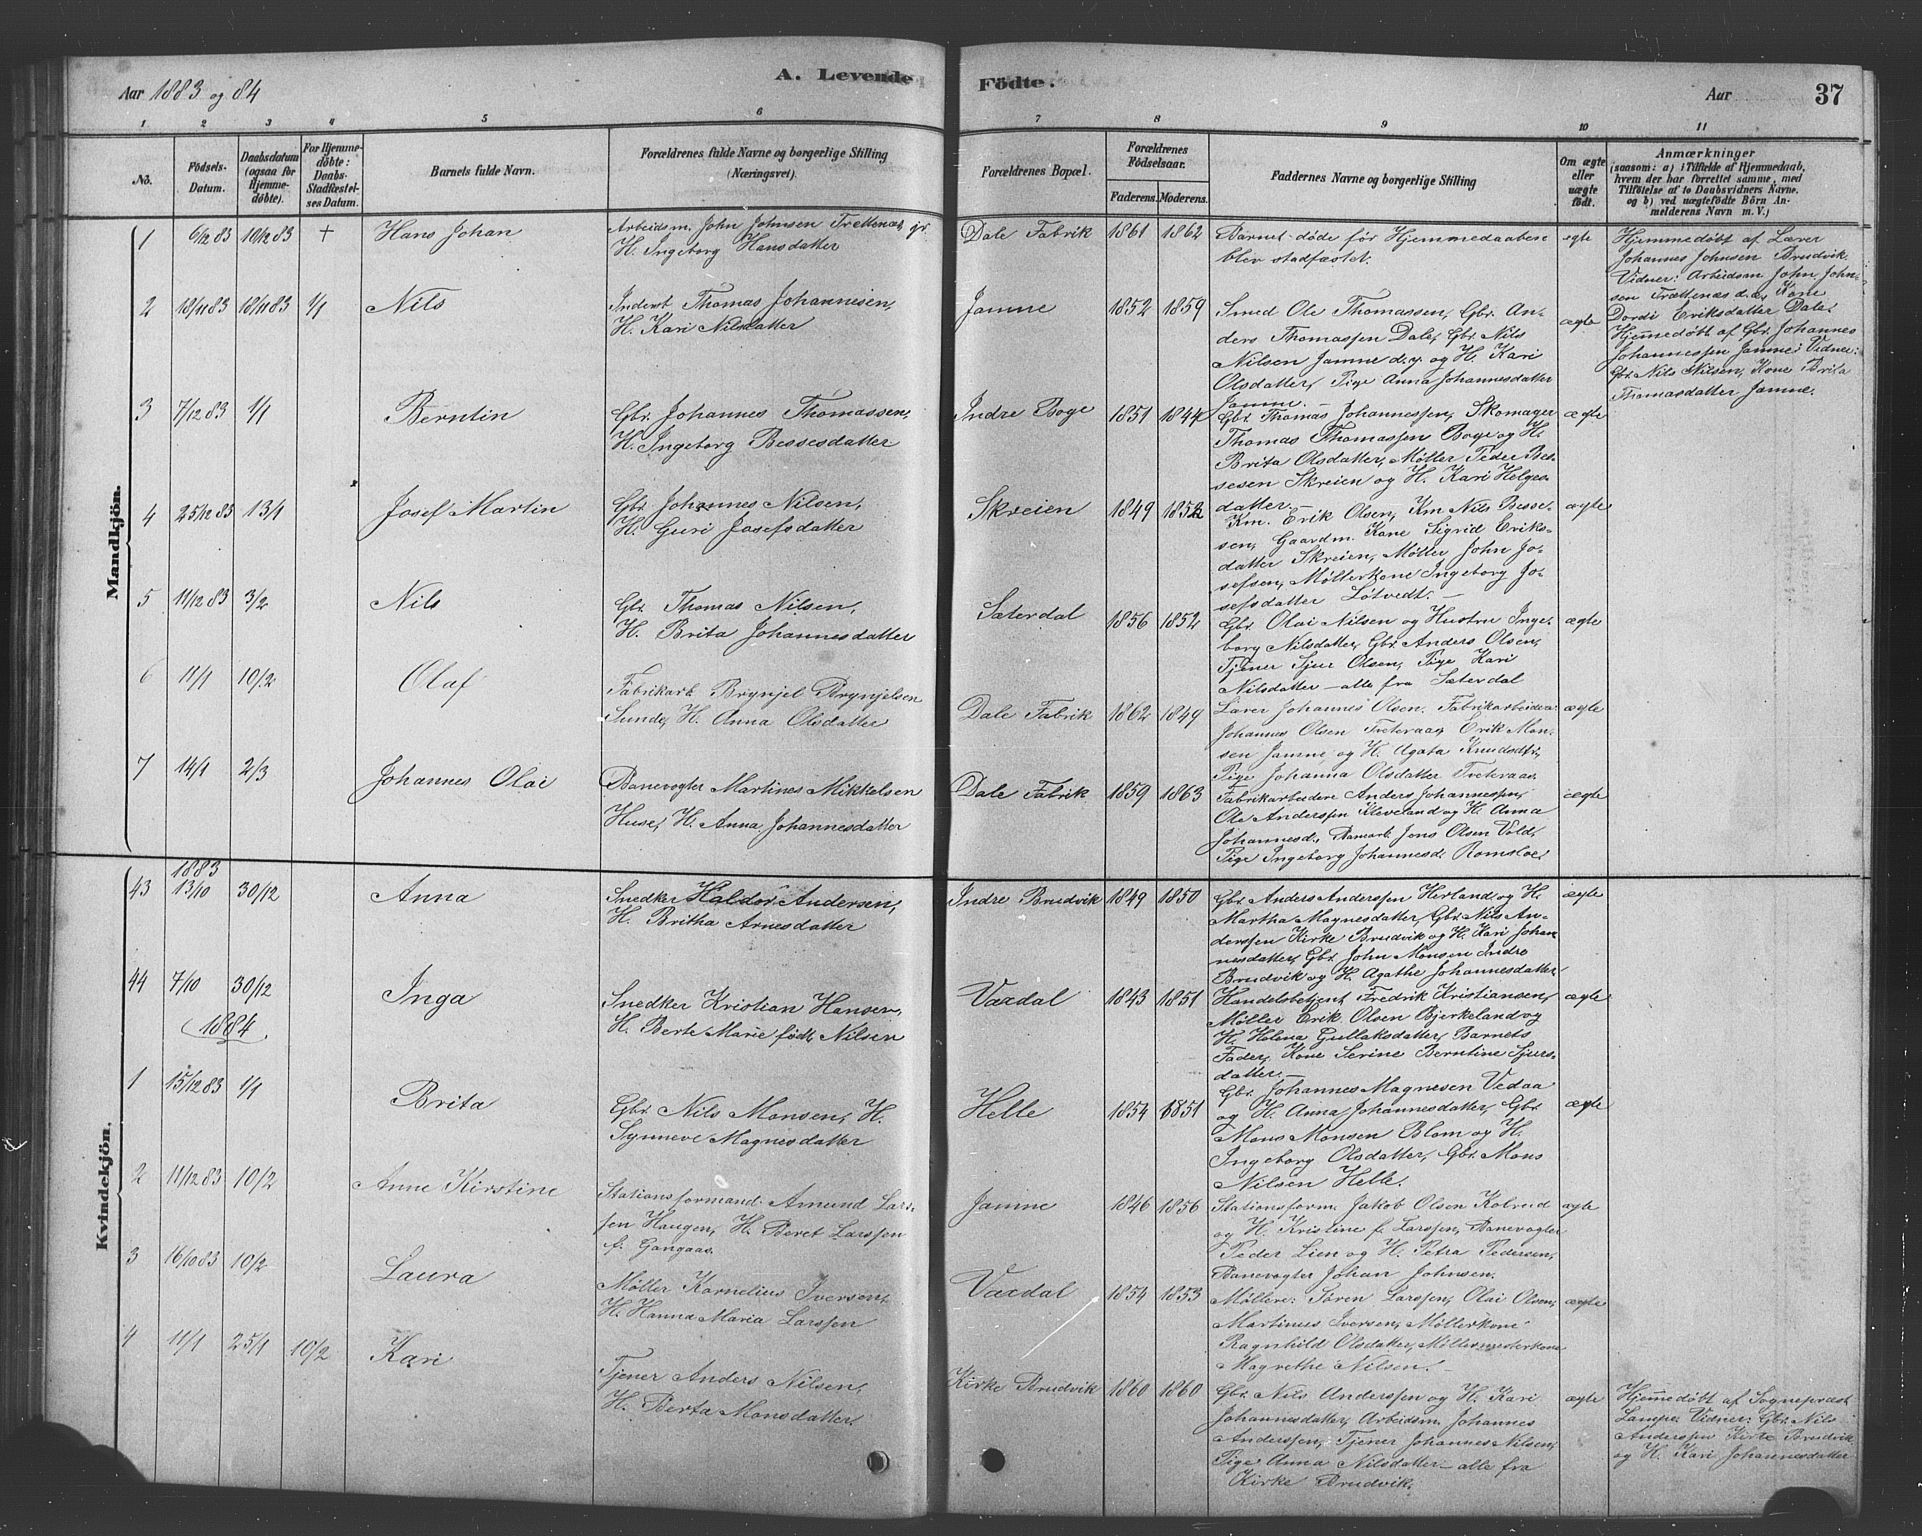 Aar 1883 og 84
A. Levende Födte.
Aar
37
1
2
3
4
5
6
7
8
9
10
11
No.
Födsels-
Datum.
Daabsdatum
(ogsaa for
Hjemme-
döbte).
For Hjemme-
döbte:
Daabs-
Stadfæstel-
ses Datum.
Barnets fulde Navn.
Forældrenes fulde Navne og borgerlige Stilling
(Næringsvei).
Forældrenes Bopæl.
Forældrenes
Födselsaar.
Faderens.
Moderens.
Faddernes Navne og borgerlige Stilling
Om ægte
eller
uægte
födt.
Anmærkninger
(saasom: a) i Tilfælde af Hjemmedaab,
hvem der har forrettet samme, med
Tilföielse af to Daabsvidners Navne,
og b) ved uægtefödte Börn An-
melderens Navn m. V.)
Mandkjön.
1 6/12 83 10/12 83 + Hans Johan
Arbeidsm. John Johnsen Trettenæs gr.
H. Ingeborg Hansdatter
Dale Fabrik 1861 1862
Barnet døde før Hjemmedaaben
blev stadfæstet.
egte
Hjemmedøbt af Lærer
Johannes Johnsen Brudvik.
Vidner: Arbeidsm John John-
sen Trættenæs d.æ, Kone
Dordi Eriksdatter Dale.
2 18/11 83 18/11 83 1/1 Nils
Inderst Thomas Johannesen,
H. Kari Nilsdatter
Jamne 1852 1859
Smed Ole Thomassen, Gbr. An-
ders Thomassen Dale, Gbr. Nils
Nilsen Jamne d.y. og H. Kari
Olsdatter, Pige Anna Johannesdatter
Jamne.
ægte
Hjemmedøbt af Gbr. Johannes
Johannessen Jamne: Vidner:
Gbr. Nils Nilsen, Kone Brita
Thomasdatter Jamne.
3 7/12 83 1/1 Berntin
Gbr. Johannes Thomassen,
H. Ingeborg Bessesdatter
Indre Boge 1851 1844
Gbr. Thomas Johannessen, Skomager
Thomas Thomassen Boge og H.
Brita Olsdatter, Møller Peder Bes-
sesen Skreien og H. Kari Helges-
datter.
ægte
4 25/12 83 13/1 Josef Martin
Gbr. Johannes Nilsen,
H. Guri Josefsdatter
Skreien 1849 1852
Km. Erik Olsen, Km Nils Besse-
sen, Gaardm. Kone Sigrid Eriks-
datter Skreien, Møller John Jo-
sefsen, Møllerkone Ingeborg Jo-
sefsdatter Løtvedt.
ægte
5 11/12 83 3/2 Nils
Gbr. Thomas Nilsen,
H. Brita Johannesdatter
Sæterdal 1856 1852
Gbr. Olai Nilsen og Hustru Inge-
borg Nilsdatter, Gbr. Anders Olsen,
Tjener Sjur Olsen, Pige Kari
Nilsdatter – alle fra Sæterdal
ægte
6 11/1 10/2 Olaf
Fabrikarb. Brynjel Brynjelsen
Sunde, H. Anna Olsdatter
Dale Fabrik 1862 1849
Lærer Johannes Olsen. Fabrikarbeidere
Johannes Olsen Tveteraas, Erik Mon-
sen Jamne og H. Agata Knudsdtr,
Pige Johanna Olsdatter Tveteraas.
ægte
7 14/1 2/3 Johannes Olai
Banevogter Martines Mikkelsen
Huse, H. Anna Johannesdatter
Dale Fabrik 1859 1863
Fabrikarbeidere Anders Johannessen,
Ole Anderssen Kleveland og H. Anna
Johannesd., Damarb. Jens Olsen Vold,
Pige Ingeborg Johannesd. Romsloe.
ægte
Kvindekjön.
1883
43 13/10 30/12 Anna
Snedker Haldor Andersen,
H. Britha Arnesdatter
Indre Brudvik 1849 1850
Gbr. Anders Anderssen Herland og H.
Martha Magnesdatter, Gbr. Nils An-
derssen Kirke Brudvik og H. Kari Johan-
nesdatter, Gbr. John Monsen Indre
Brudvik og H. Agathe Johannesdatter
ægte
44 7/10 30/12 Inga
Snedker Kristian Hansen,
H. Berte Marie født Nilsen
Vaxdal 1843 1851
Handelsbetjent Fredrik Kristiansen,
Møller Erik Olsen Bjerkeland og
H. Helena Gullaksdatter, Barnets
Fader, Kone Serine Berntine Sjurs-
datter.
ægte
1884
1 15/12 83 1/1 Brita
Gbr. Nils Monsen, H.
Synneve Magnesdatter
Helle 1854 1851
Gbr. Johannes Magnesen Vedaa
og H. Anna Johannesdatter, Gbr.
Mons Monsen Blom og H.
Ingeborg Olsdatter, Gbr. Mons
Nilsen Helle.
ægte
2 11/12 83 10/2 Anne Kirstine
Stationsformand Amund Lars-
sen Haugen, H. Beret Larssen
f. Gangaas.
Jamne 1846 1856
Stationsform. Jakob Olsen Kolreid
og H. Kristine f. Larssen, Banevogter
Peder Lien og H. Petra Pedersen,
Banevogter Johan Johnsen.
ægte
3 16/10 83 10/2 Laura
Møller Kornelius Iversen,
H. Hanna Maria Larssen
Vaxdal 1854 1853
Møllere: Søren Larssen, Olai Olsen,
Martinus Iversen, Møllerkone
Ragnhild Olsdatter, Møllermesterkone
Magrethe Nilsen.
ægte
4 11/1 25/1 10/2 Kari
Tjener Anders Nilsen,
H. Berta Monsdatter
Kirke Brudvik 1860 1860
Gbr. Nils Anderssen og H. Kari
Johannesdatter, Arbeidsm. Johannes
Anderssen, Tjener Johannes Nilsen,
Pige Anna Nilsdatter – alle fra
Kirke Brudvik.
ægte
Hjemmedøbt af Sogneprest
Lampe. Vidner: Gbr. Nils
Anderssen Kirke Brudvik
og H. Kari Johannesdatter